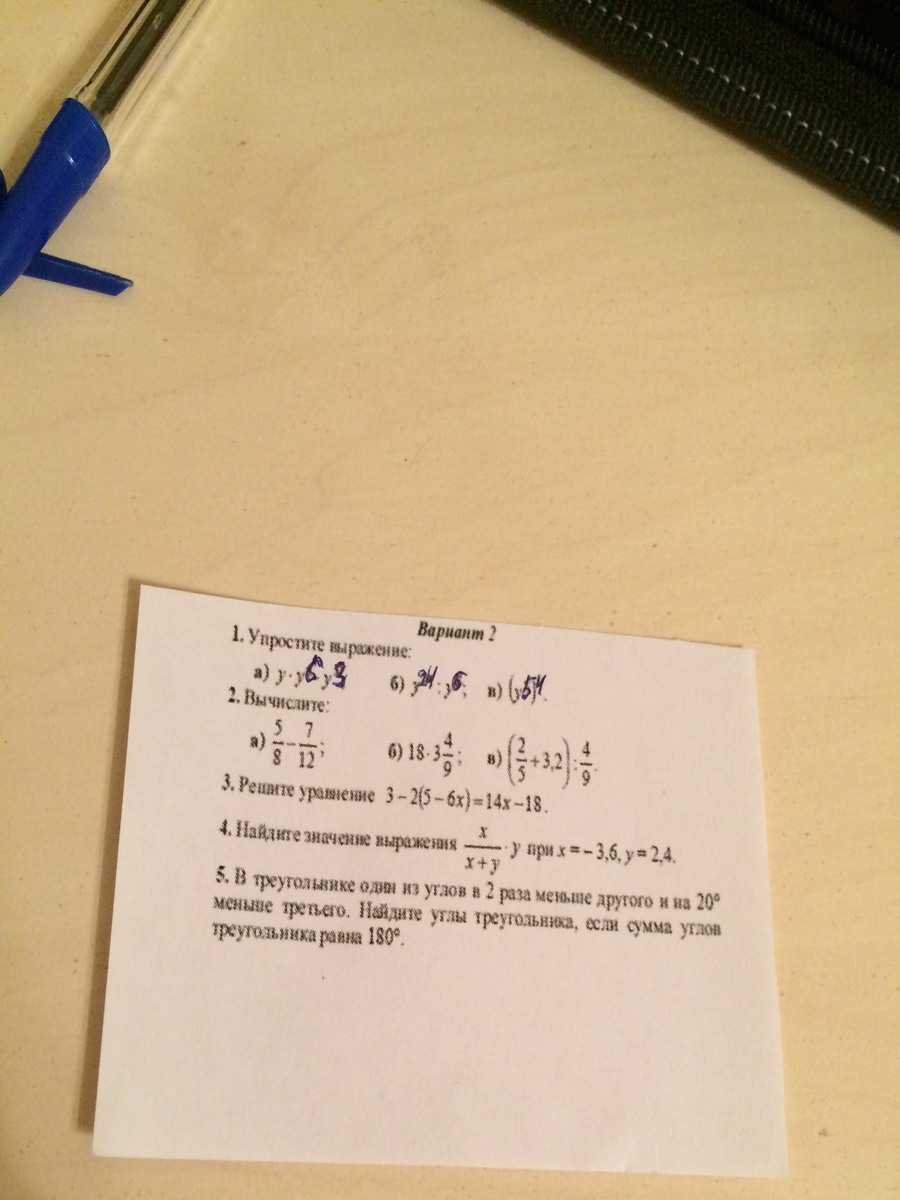 Вариант 2
1. Упростите выражение:
а) y · y⁶ y³; б) y²⁴ : y⁶; в) (y⁵)⁴.
2. Вычислите:
а) 5/8 − 7/12; б) 18 · 3 4/9; в) (2/5 + 3,2) : 4/9.
3. Решите уравнение 3 − 2(5 − 6x) = 14x − 18.
4. Найдите значение выражения x/(x + y) · y при x = − 3,6, y = 2,4.
5. В треугольнике один из углов в 2 раза меньше другого и на 20°
меньше третьего. Найдите углы треугольника, если сумма углов
треугольника равна 180°.